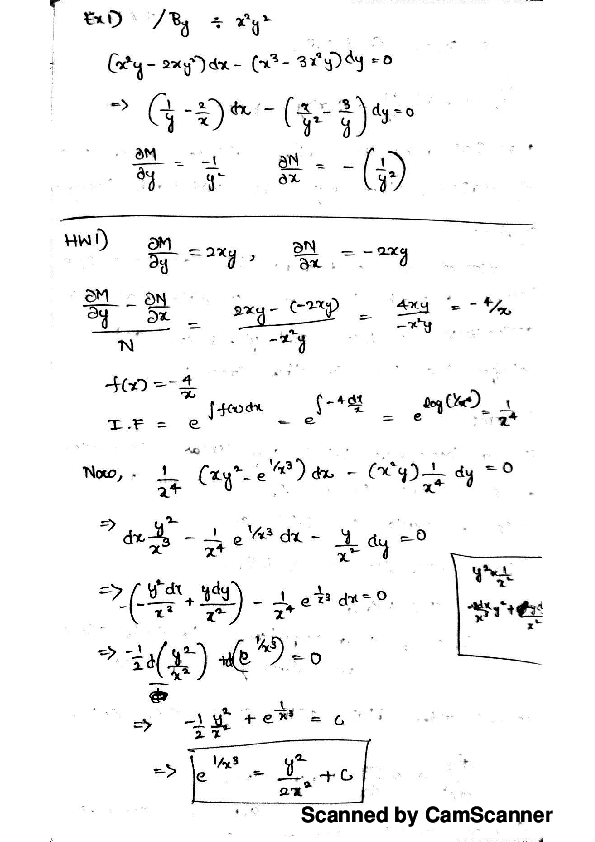 Ex1) /By ÷ x²y²
(x²y - 2xy²)dx - (x³ - 3x²y)dy = 0
=> (1/y - 2/x) dx - (x/y² - 3/y) dy = 0
∂M/∂y = -1/y² ∂N/∂x = -(1/y²)
HW1) ∂M/∂y = 2xy, ∂N/∂x = -2xy
(∂M/∂y - ∂N/∂x)/N = (2xy - (-2xy))/(-x²y) = 4xy/(-x²y) = -4/x
f(x) = -4/x
I.F = e^(∫f(x)dx) = e^(∫-4 dx/x) = e^(log(1/x⁴)) = 1/x⁴
Now, 1/x⁴ (xy² - e^(1/x³)) dx - (x²y) 1/x⁴ dy = 0
=> dx y²/x³ - 1/x⁴ e^(1/x³) dx - y/x² dy = 0
=> -(-y²dx/x³ + ydy/x²) - 1/x⁴ e^(1/x³) dx = 0
y² × 1/x²
=> -1/2 d(y²/x²) + d(e^(1/x³)) = 0
=> -1/2 y²/x² + e^(1/x³) = c
=> e^(1/x³) = y²/2x² + C
Scanned by CamScanner